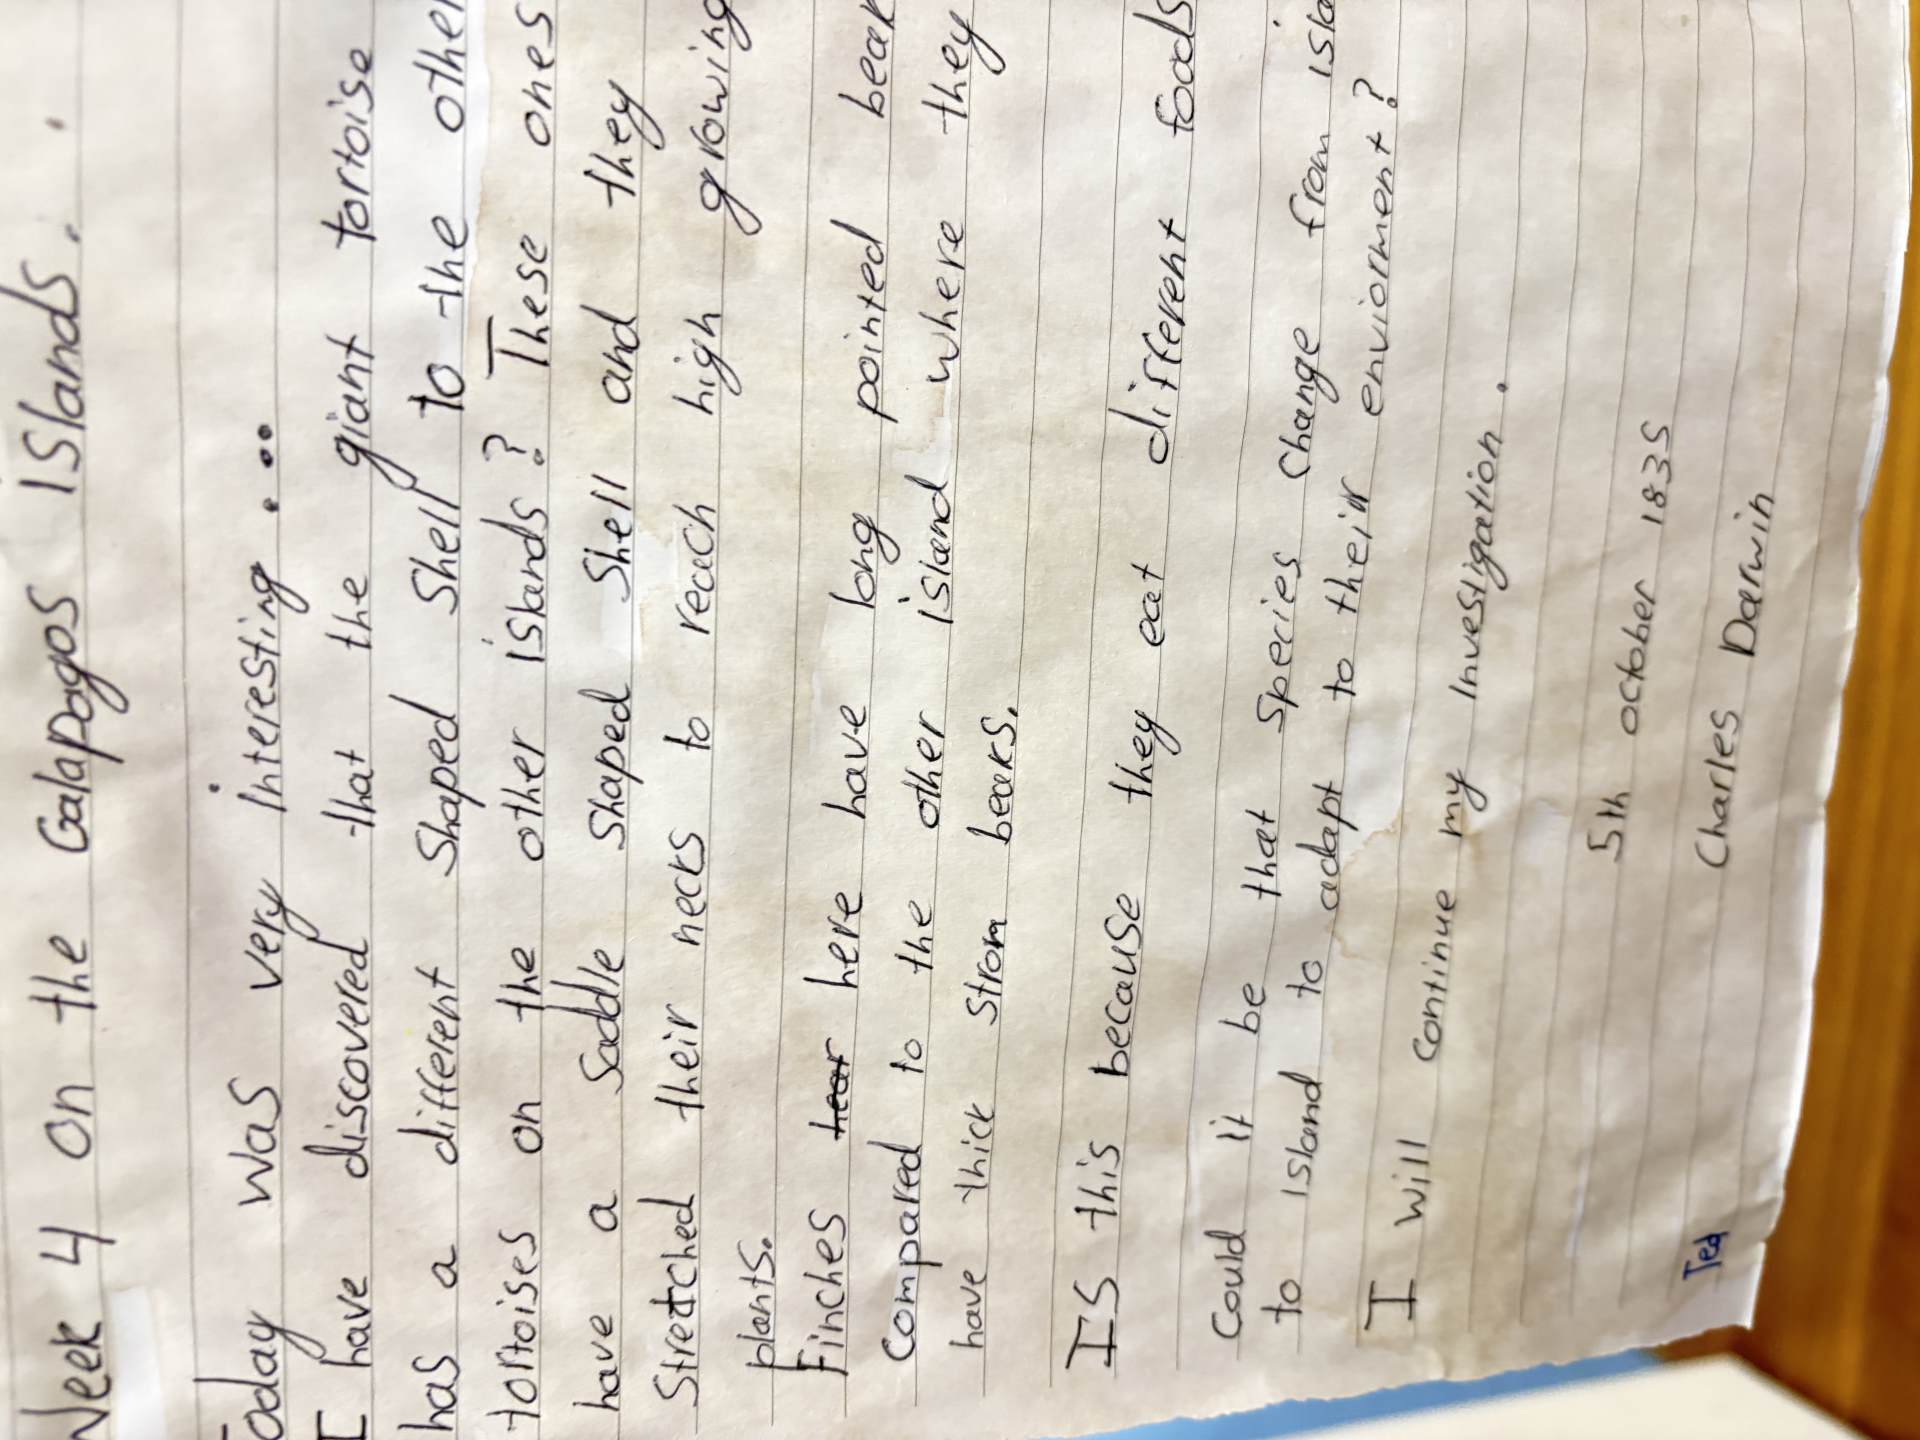 Week 4 on the Galapagos islands. .
Today was very interesting ....
I have discovered that the giant tortoise
has a different shaped shell to the other
tortoises on the other islands? These ones
have a saddle shaped shell and they
stretched their necks to reach high growing
plants.
Finches hear here have long pointed beak
compared to the other island where they
have thick strom beaks.
IS this because they eat different foods
Could it be that species change from isla
to island to adapt to their enviorment?
I will continue my investigation.
5th october 1835
Charles Darwin
Ted